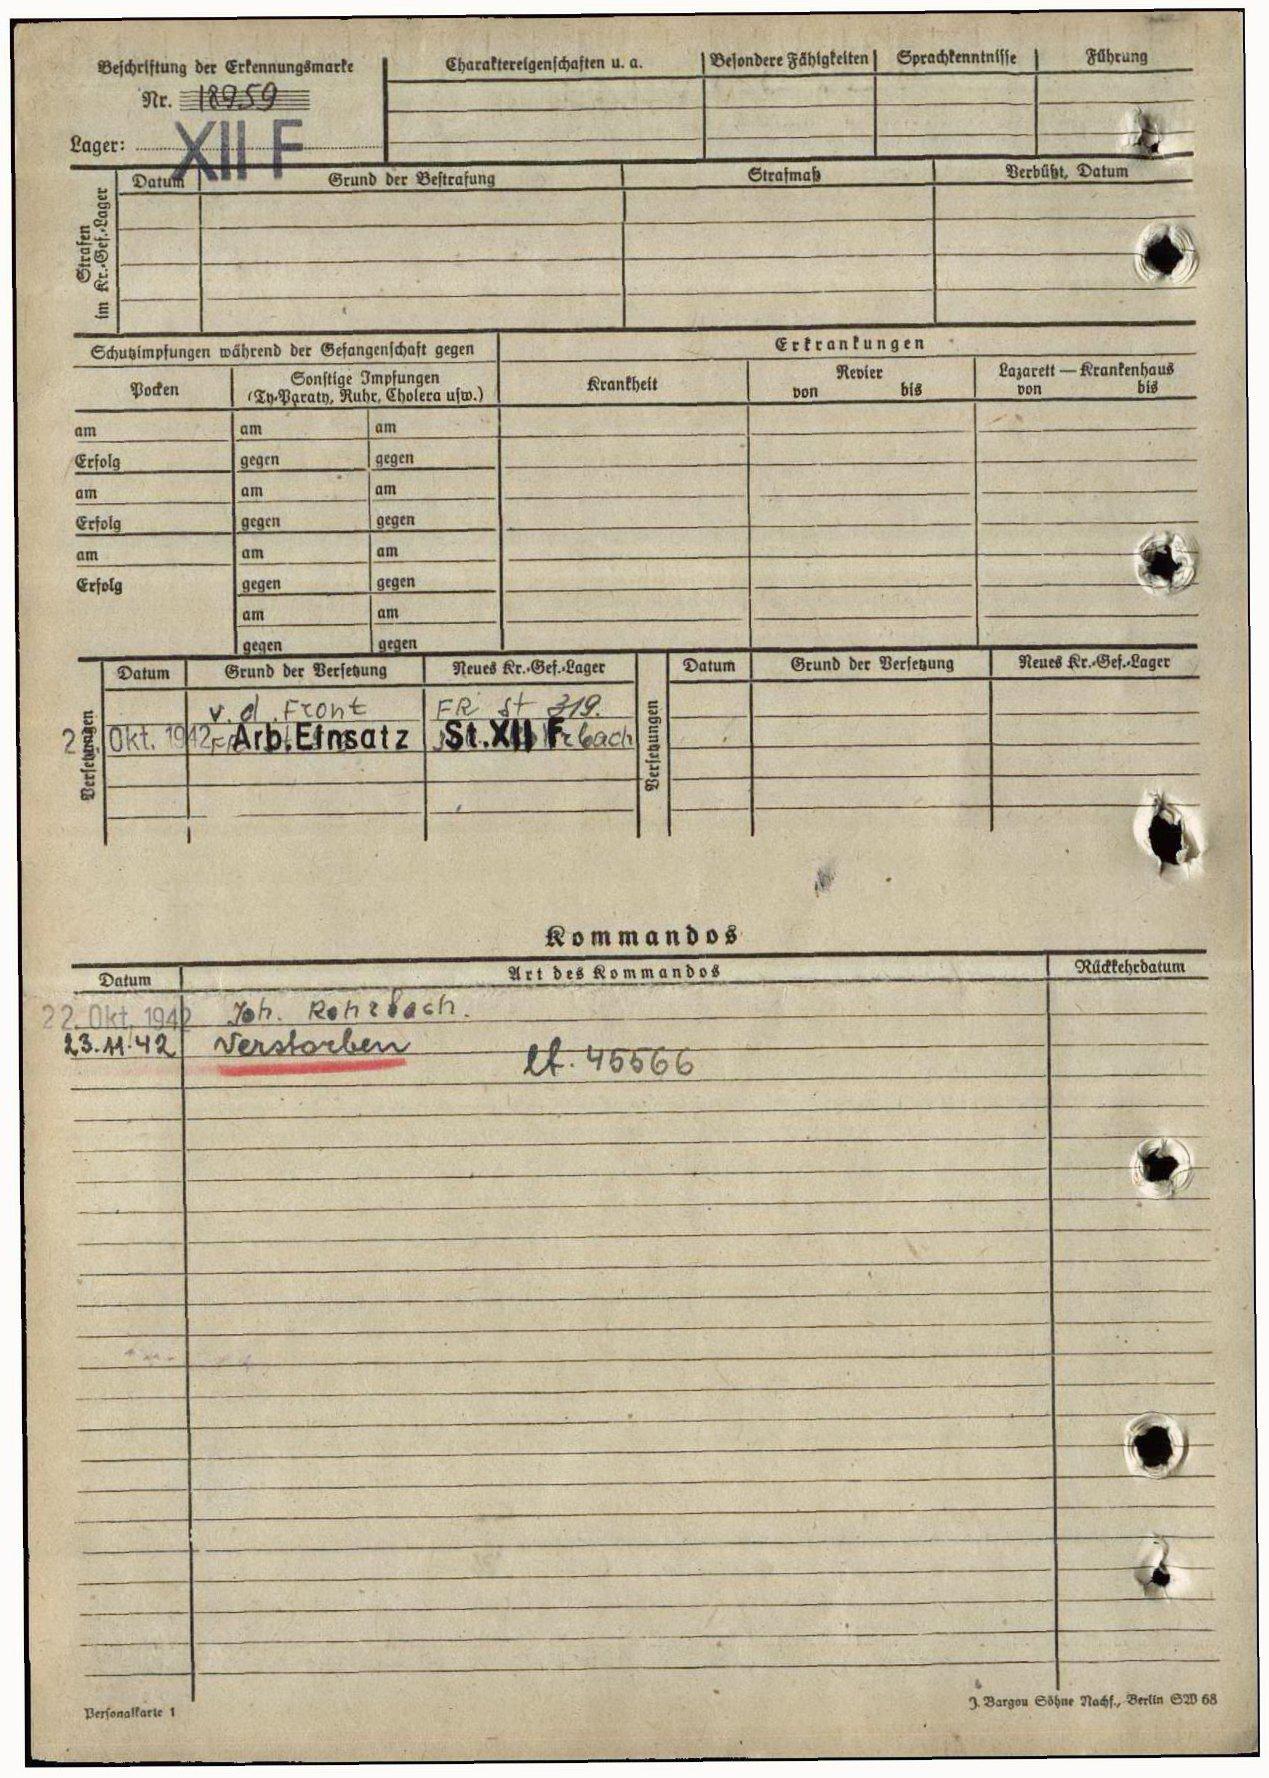 Beschriftung der Erkennungsmarke
Nr. 18959
Lager: XII F
Charaktereigenschaften u. a.
Besondere Fähigkeiten
Sprachkenntnisse
Führung
Strafen
im Kr.-Gef.-Lager
Datum
Grund der Bestrafung
Strafmaß
Verbüßt, Datum
Schutzimpfungen während der Gefangenschaft gegen
Erkrankungen
Pocken
Sonstige Impfungen
(Ty-Paraty, Ruhr, Cholera usw.)
Krankheit
Revier
von bis
Lazarett — Krankenhaus
von bis
am am am
Erfolg gegen gegen
am am am
Erfolg gegen gegen
am am am
Erfolg gegen gegen
am am
gegen gegen
Versetzungen
Datum Grund der Versetzung Neues Kr.-Gef.-Lager
v. d. Front FR St 319.
Okt. 1942 Arb.Einsatz St.XII F
Versetzungen
Datum Grund der Versetzung Neues Kr.-Gef.-Lager
Kommandos
Datum Art des Kommandos Rückkehrdatum
22. Okt. 1942 Joh. Rohrbach.
23.11.42 Verstorben
lt. 45566
Personalkarte 1
J. Bargou Söhne Nachf., Berlin SW 68